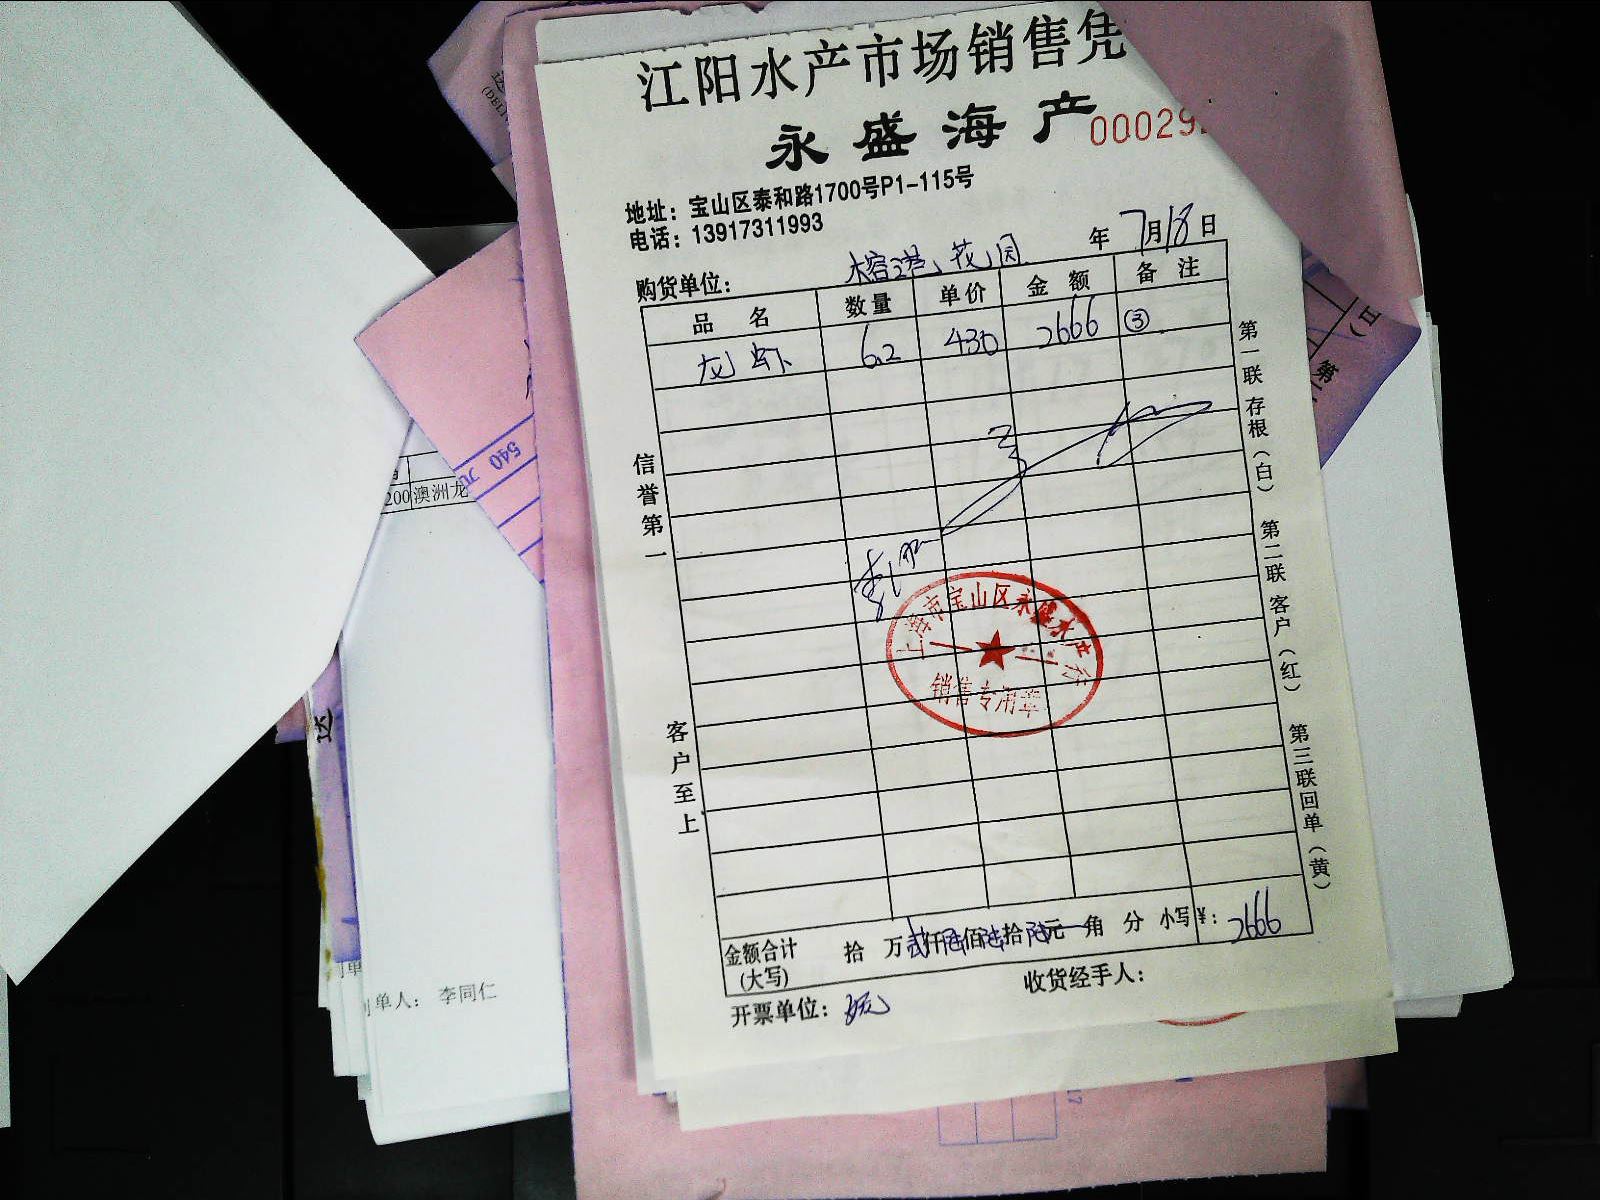 江阳水产市场销售凭
永盛海产
00029
地址：宝山区泰和路1700号P1-115号
电话：13917311993
年 7月18日
购货单位： 榕港花园
品名 数量 单价 金额 备注
龙虾 6.2 430 2666 ③
信誉第一
客户至上
第一联 存根（白） 第二联 客户（红） 第三联 回单（黄）
上海市宝山区永盛水产行
销售专用章
金额合计（大写） 拾 万 贰仟陆佰陆拾陆元 角 分 小写¥： 2666
开票单位：
收货经手人：
540 元
200 澳洲龙
单人： 李同仁